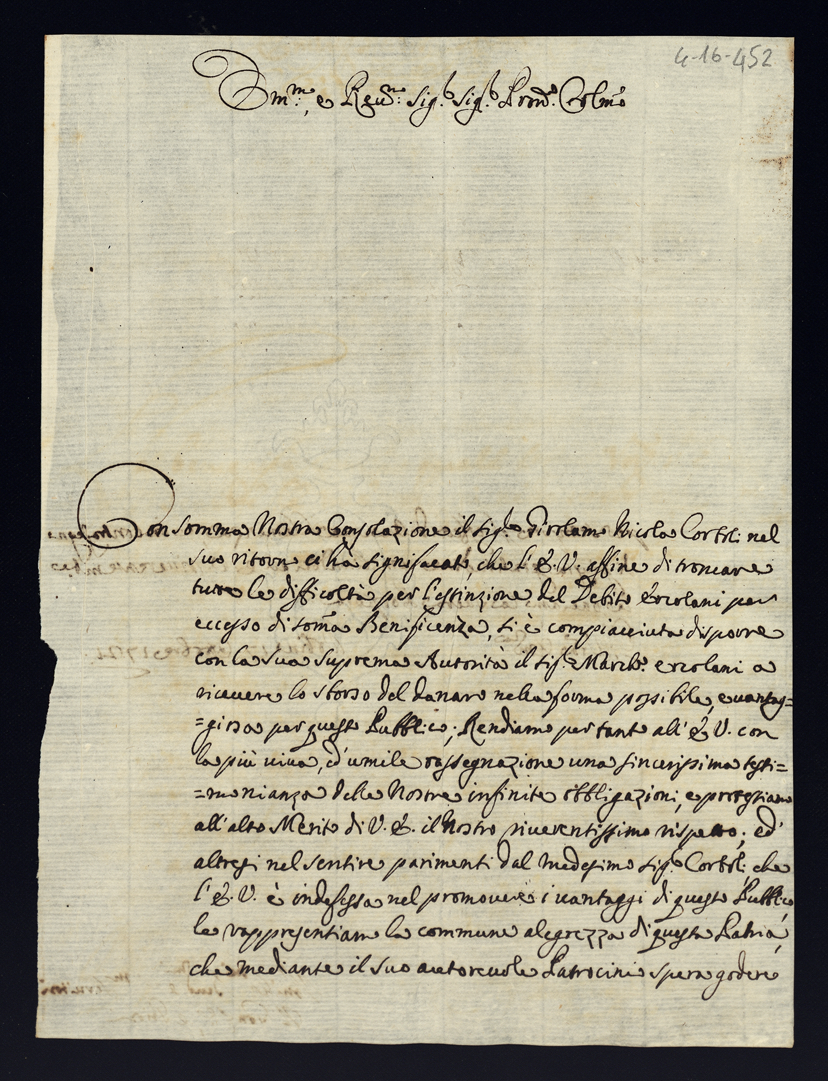 4-16-452
Em.mo, e Reu.mo Sig.r Sig.r Pron. Colmo
Con somma Nostra Consolazione il Sig.r Girolamo Nicola Cortoli nel
suo ritorno ci hà significato, che l'E. V. affine di troncare
tutte le difficoltà per l'estinzione del Debito Ercolani per
eccesso di somma Benificenza, si è compiacciuta disporre
con la sua suprema Autorità il Sig.r March. Ercolani a
riceuere lo sborso del danaro nella forma possibile, e uantag=
=giosa per questo Pubblico; Rendiamo per tanto all'E. V. con
la più uiua, ed umile rassegnazione una sincerissima testi=
=monianza delle Nostre infinite obbligazioni, e protestiamo
all'alto Merito di V. E. il Nostro riuerentissimo rispetto; ed
altresi nel sentire parimenti dal medesimo Sig.r Cortoli, che
l'E. V. è indefessa nel promouere i uantaggi di questo Pubblico
le rappresentiamo la commune alegrezza di questa Patria,
che mediante il suo autoreuole Patrocinio spera godere